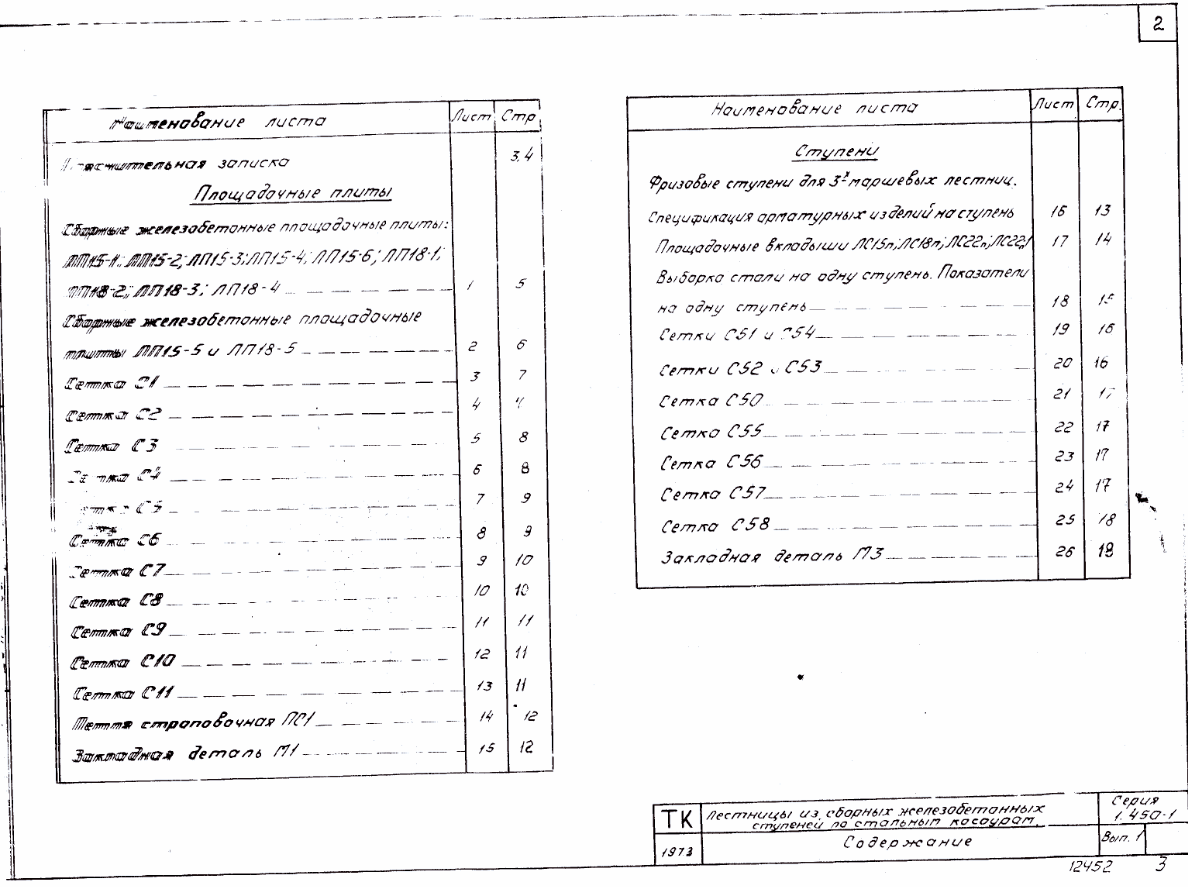 2
Наименование листа Лист Стр.
Пояснительная записка 3.4
Площадочные плиты
Сборные железобетонные площадочные плиты:
ЛП15-1; ЛП15-2; ЛП15-3; ЛП15-4; ЛП15-6; ЛП18-1;
ЛП18-2; ЛП18-3; ЛП18-4 1 5
Сборные железобетонные площадочные
плиты ЛП15-5 и ЛП18-5 2 6
Сетка С1 3 7
Сетка С2 4
Сетка С3 5 8
Сетка С4 6 8
Сетка С5 7 9
Сетка С6 8 9
Сетка С7 9 10
Сетка С8 10 10
Сетка С9 11 11
Сетка С10 12 11
Сетка С11 13 11
Петля строповочная ПС1 14 12
Закладная деталь М1 15 12
Наименование листа Лист Стр.
Ступени
Фризовые ступени для 3х маршевых лестниц.
Спецификация арматурных изделий на ступень 16 13
Площадочные вкладыши ЛС15п; ЛС18п; ЛС22п; 17 14
Выборка стали на одну ступень. Показатели
на одну ступень 18 15
Сетки С51 и С54 19 16
Сетки С52 и С53 20 16
Сетка С50 21 17
Сетка С55 22 17
Сетка С56 23 17
Сетка С57 24 17
Сетка С58 25 18
Закладная деталь М3 26 18
ТК Лестницы из сборных железобетонных
ступеней по стальным косоурам. Серия
1.450-1
1973 Содержание Вып. 1
12452 3